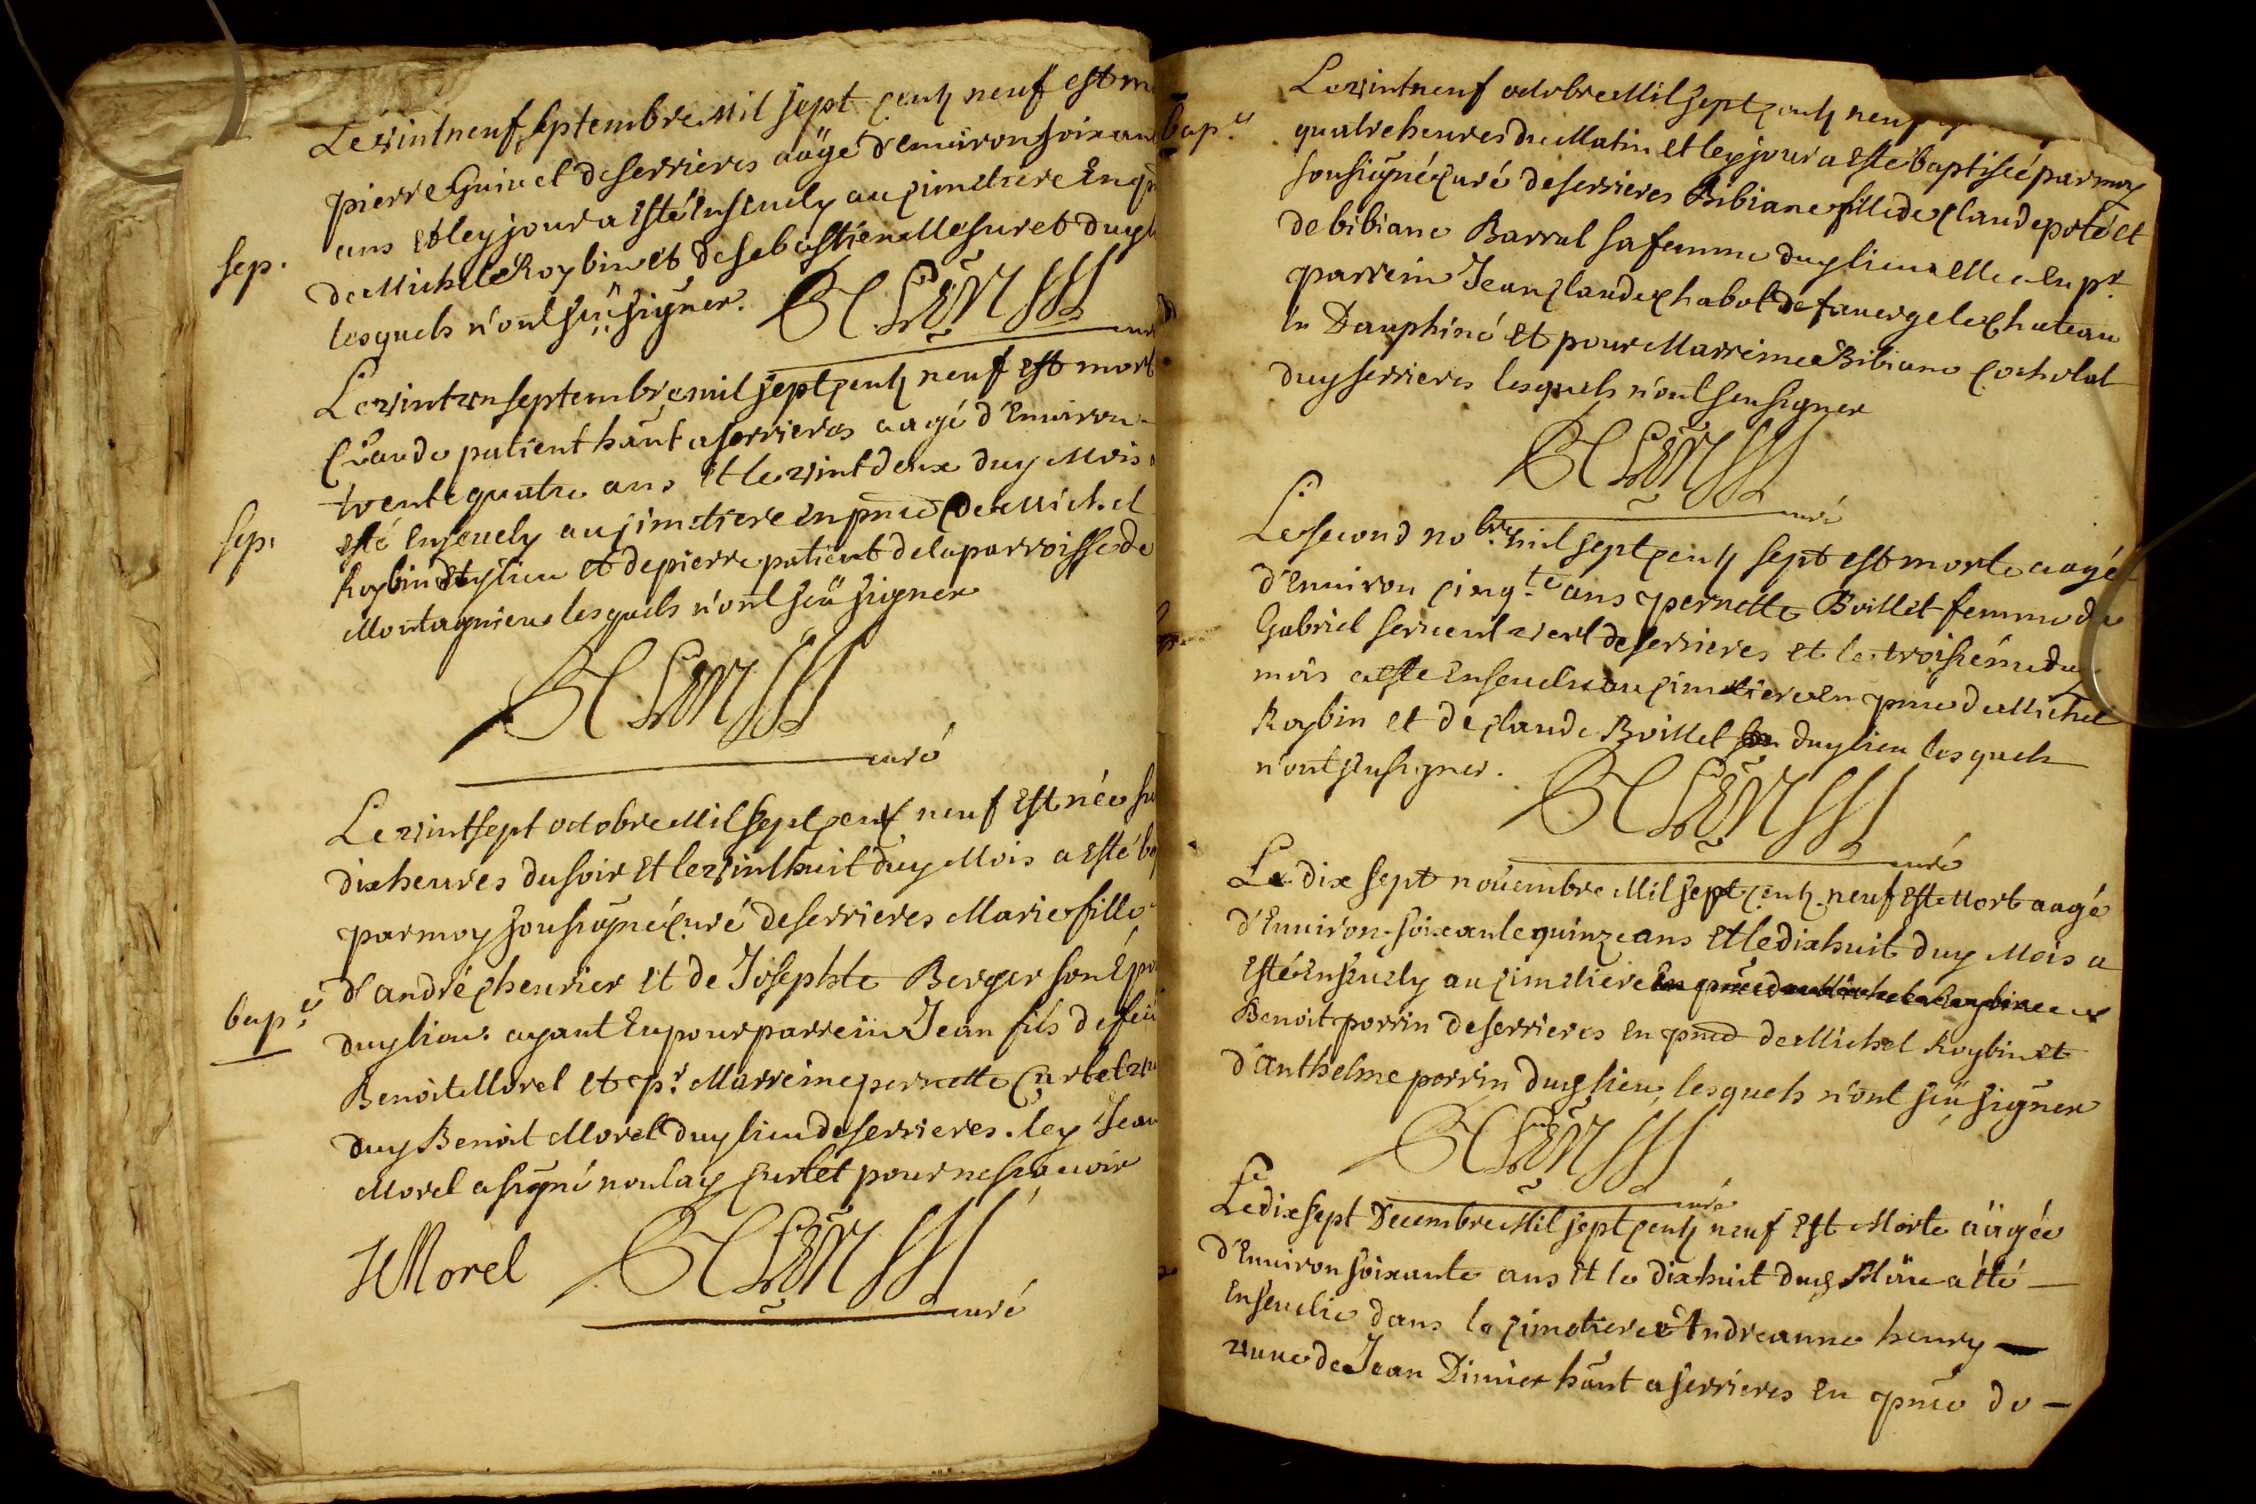 Le vintneuf septembre mil sept centz neuf est m
pierre Guinet de serrieres aâgé d'enuiron soixan
ans et ley jour a esté enseuely au cimetiere en p
sep.
de Michel Roybin et de sebastien Mesuret duy
lesquels n'ont sceü signer.
curé
Le vint un septembre mil sept centz neuf est mort
Claude patient hãnt a serrieres aagé d'Enuiron
trente quatre ans et le vint deux duy Mois
sep.
esté enseuely au cimetiere en pñce de Michel
Roybin dy lieu et de pierre patient de la parroisse de
Montagnieu lesquels n'ont sceü signer
curé
Le vint sept octobre Mil sept cent neuf est née su
dix heures du soir et le vint huit duy Mois a esté b
par moy soussigné curé de serrieres Marie fille
bap.e
d'andré cheurier et de Josephte Berger son Ép
duy lieu. ayant eu pour parrein Jean fils de feu
Benoit Morel et pr Marreine pernette Curtet
duy Benoit Morel duy lieu de serrieres. ley Jean
Morel a signé non lay Curtet pour ne sçauoir
J Morel
curé
bap.e
Le vintneuf octobre Mil sept centz neuf
quatre heures du Matin et ley jour a esté baptisée par moy
soussigné curé de serrieres Bibiane fille de Claude poté et
de bibiane Barral sa femme duy lieu elle a eu pr
parrein Jean Claude chabot de fauerge le chateau
en Dauphiné et pour Marreine Bibiane Cocholat
duy serrieres lesquels n'ont sceu signer
curé
Le second nobre mil sept centz sept est morte aagée
d'Enuiron cinqte ans pernette Boillet femme de
Gabriel seruent vert de serrieres et le troisiéme du
mois a esté enseuelie au cimetiere en pñce de Michel
Roybin et de Claude Boillet duy lieu lesquels
n'ont sceu signer.
curé
Le dix sept nouembre Mil sept centz neuf est Mort aagé
d'Enuiron soixante quinze ans et le dix huit duy Mois a
esté Enseuely au cimetiere en pñce de Michel Roybin et
Benoit porrin de serrieres en pñce de Michel Roybin et
d'Anthelme porrin duy lieu, lesquels n'ont sceü signer
curé
Le dix sept Decembre Mil sept centz neuf est Morte aâgée
d'Enuiron soixante ans et le dix huit duy Mois a été
enseuelie dans le cimetiere Andreanne henry
veuue de Jean Dimier hãnt a serrieres en pñce de